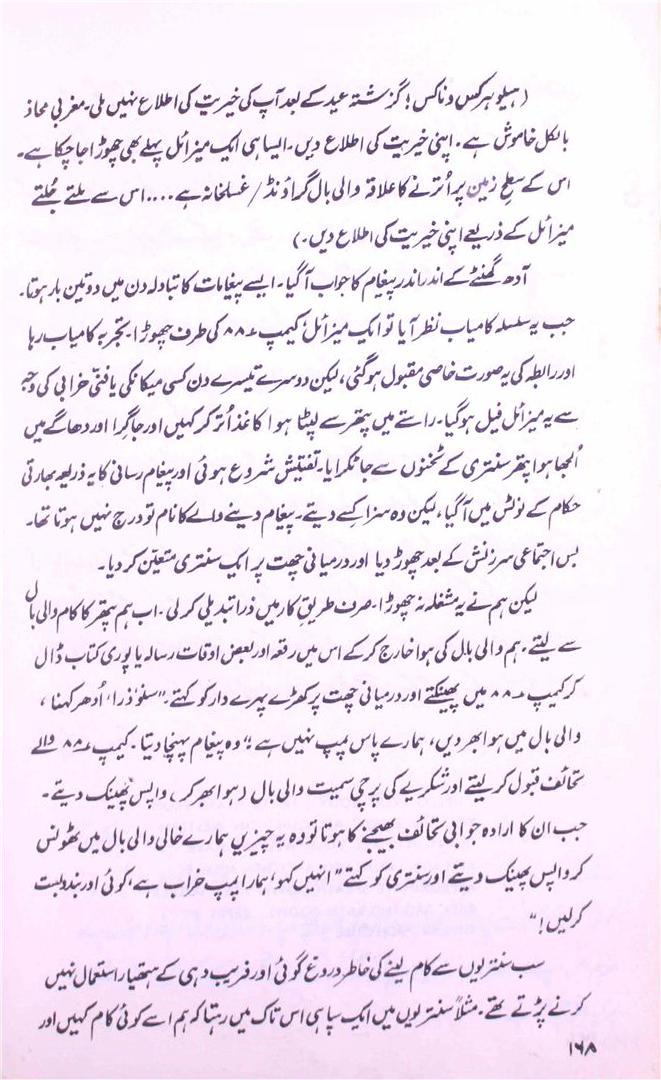 (ہیلو ہر کس و ناکس! گزشتہ عید کے بعد آپ کی خیریت کی اطلاع نہیں ملی۔ مغربی محاذ
بالکل خاموش ہے۔ اپنی خیریت کی اطلاع دیں۔ ایسا ہی ایک میزائل پہلے بھی چھوڑا جا چکا ہے۔
اس کے سطح زمین پر اُترنے کا علاقہ والی بال گراؤنڈ / غسلخانہ ہے .... اس سے ملتے جُلتے
میزائل کے ذریعے اپنی خیریت کی اطلاع دیں۔)
آدھ گھنٹے کے اندر اندر پیغام کا جواب آ گیا۔ ایسے پیغامات کا تبادلہ دن میں دو تین بار ہوتا۔
جب یہ سلسلہ کامیاب نظر آیا تو ایک میزائل کیمپ ۸۸ کی طرف چھوڑا۔ تجربہ کامیاب رہا
اور رابطہ کی یہ صورت خاصی مقبول ہو گئی، لیکن دوسرے تیسرے دن کسی میکانکی یا فنّی خرابی کی وجہ
سے یہ میزائل فیل ہو گیا۔ راستے میں پتھر سے لپٹا ہوا کاغذ اُتر کر کہیں اور جا گرا اور دھاگے میں
اُلجھا ہوا پتھر سنتری کے ٹخنوں سے جا ٹکرایا۔ تفتیش شروع ہوئی اور پیغام رسانی کا یہ ذریعہ بھارتی
حکام کے نوٹس میں آ گیا، لیکن وہ سزا کسے دیتے۔ پیغام دینے والے کا نام تو درج نہیں ہوتا تھا۔
بس اجتماعی سرزنش کے بعد چھوڑ دیا اور درمیانی چھت پر ایک سنتری متعین کر دیا۔
لیکن ہم نے یہ مشغلہ نہ چھوڑا۔ صرف طریقِ کار میں ذرا تبدیلی کر لی۔ اب ہم پتھر کا کام والی بال
سے لیتے۔ ہم والی بال کی ہوا خارج کر کے اس میں رقعہ اور بعض اوقات رسالہ یا پوری کتاب ڈال
کر کیمپ ۸۸ میں پھینکتے اور درمیانی چھت پر کھڑے پہرے دار کو کہتے۔ "سنو، ذرا، اُدھر کہنا،
والی بال میں ہوا بھر دیں، ہمارے پاس پمپ نہیں ہے؛" وہ پیغام پہنچا دیتا۔ کیمپ ۸۸ والے
تحائف قبول کر لیتے اور شکریے کی پرچی سمیت والی بال (ہوا بھر کر) واپس پھینک دیتے۔
جب ان کا ارادہ جوابی تحائف بھیجنے کا ہوتا تو وہ یہ چیزیں ہمارے خالی والی بال میں ٹھونس
کر واپس پھینک دیتے اور سنتری کو کہتے "انہیں کہو، ہمارا پمپ خراب ہے، کوئی اور بندوبست
کر لیں!"
سب سنتریوں سے کام لینے کی خاطر دروغ گوئی اور فریب دہی کے ہتھیار استعمال نہیں
کرنے پڑتے تھے۔ مثلاً سنتریوں میں ایک سپاہی اس تاک میں رہتا کہ ہم اسے کوئی کام کہیں اور
۱۶۸